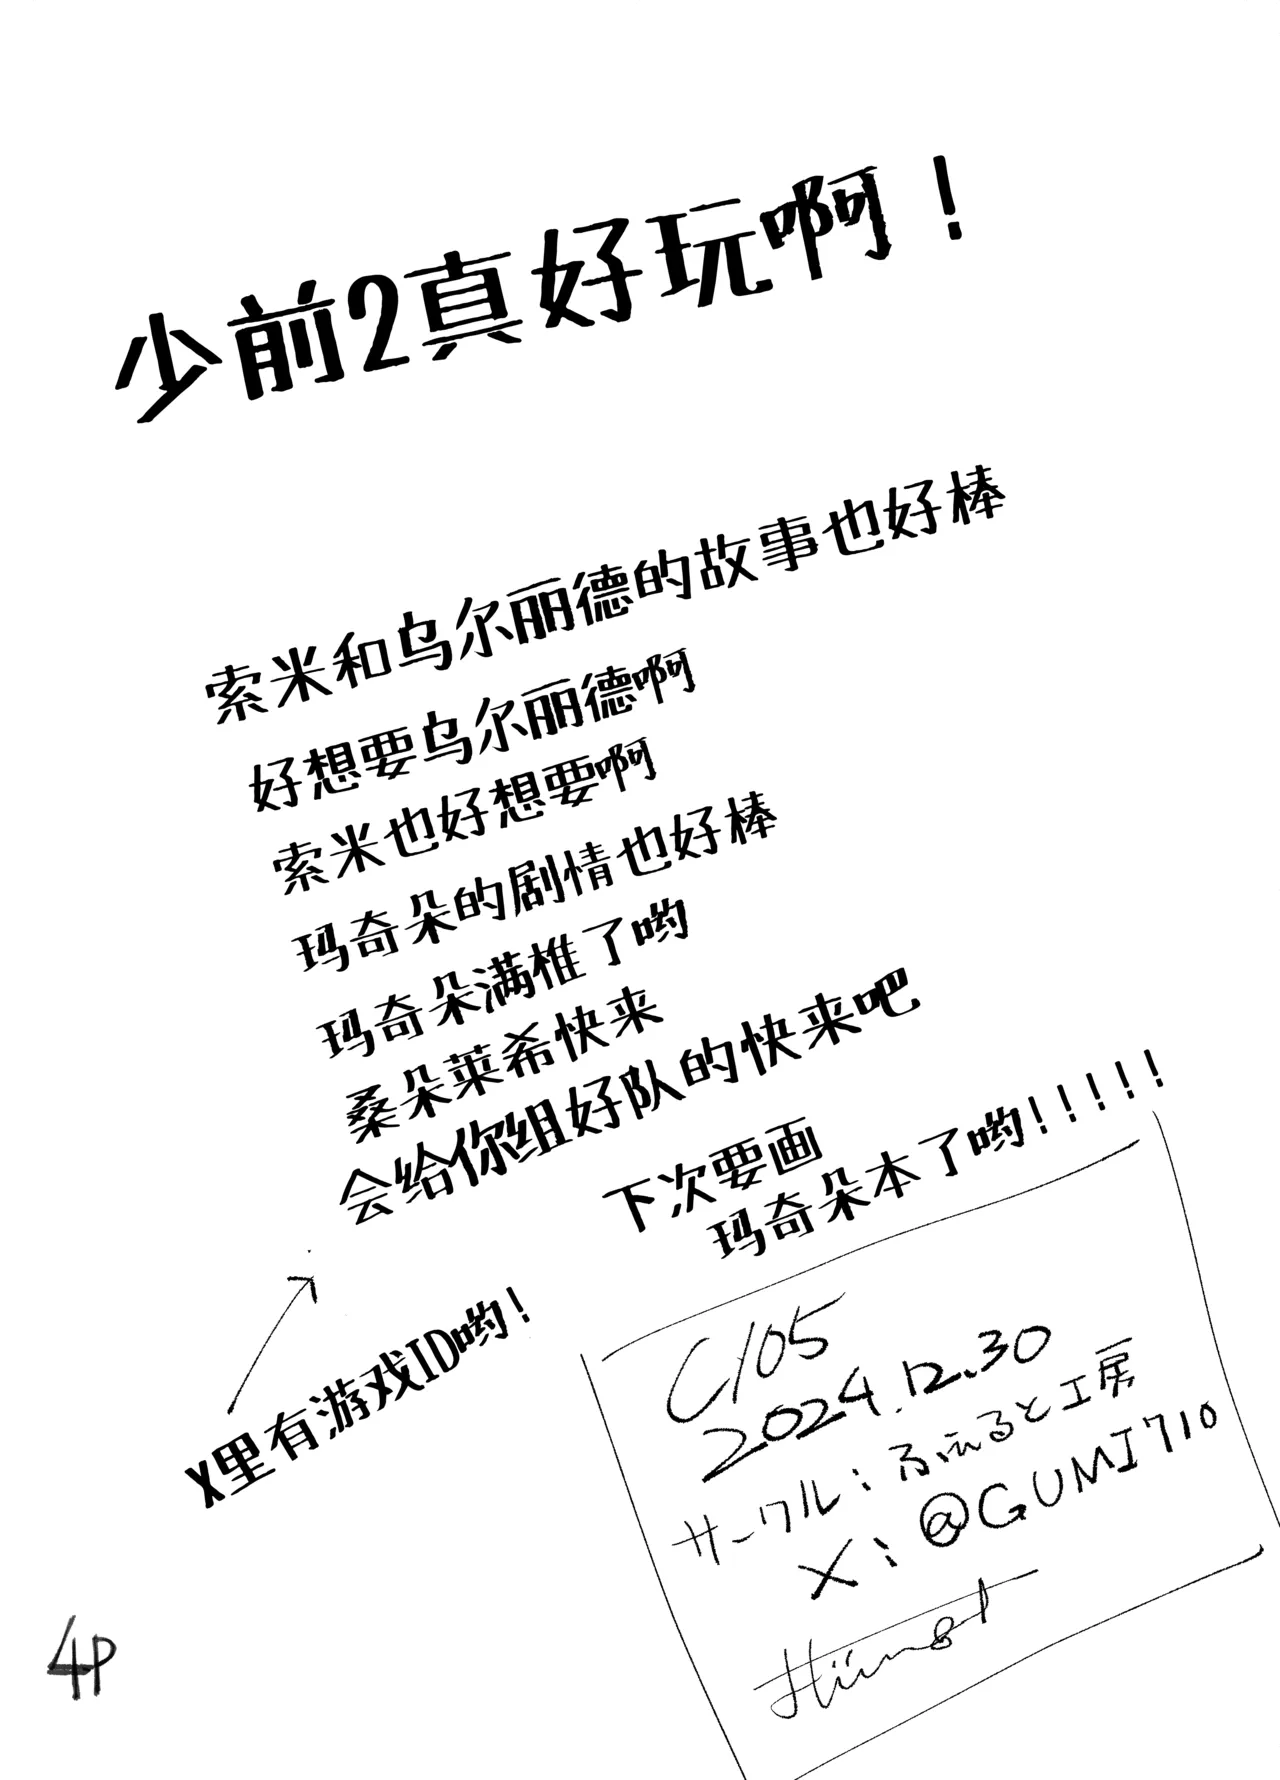 少前2真好玩啊！
索米和乌尔丽德的故事也好棒
好想要乌尔丽德啊
索米也好想要啊
玛奇朵的剧情也好棒
玛奇朵满椎了哟
桑朵莱希快来
会给你组好队的快来吧
下次要画
玛奇朵本了哟!!!!!
X里有游戏ID哟！
C105
2024.12.30
サークル：ふえると工房
X：@GUMI710
4P